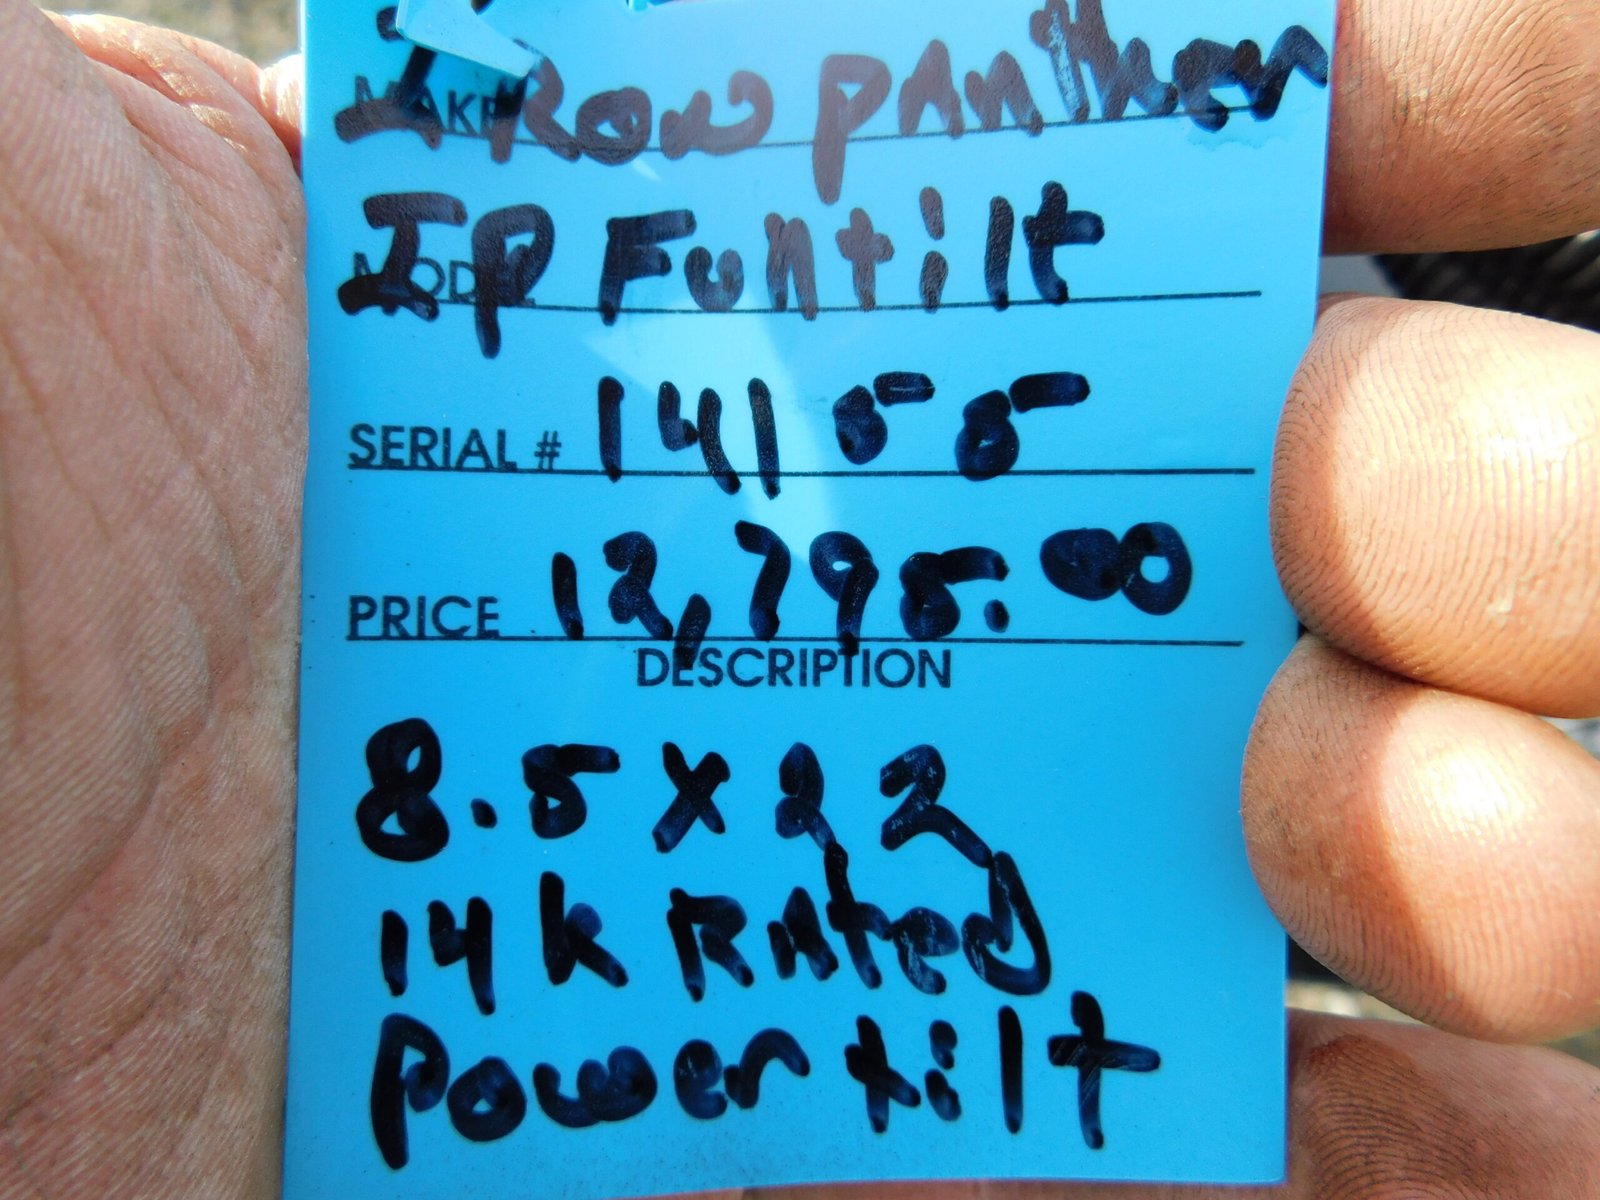 MAKE IRON PANTHER
MODEL IP Funtilt
SERIAL # 14155
PRICE 12,795.00
DESCRIPTION
8.5 x 22
14k Rated
Power tilt